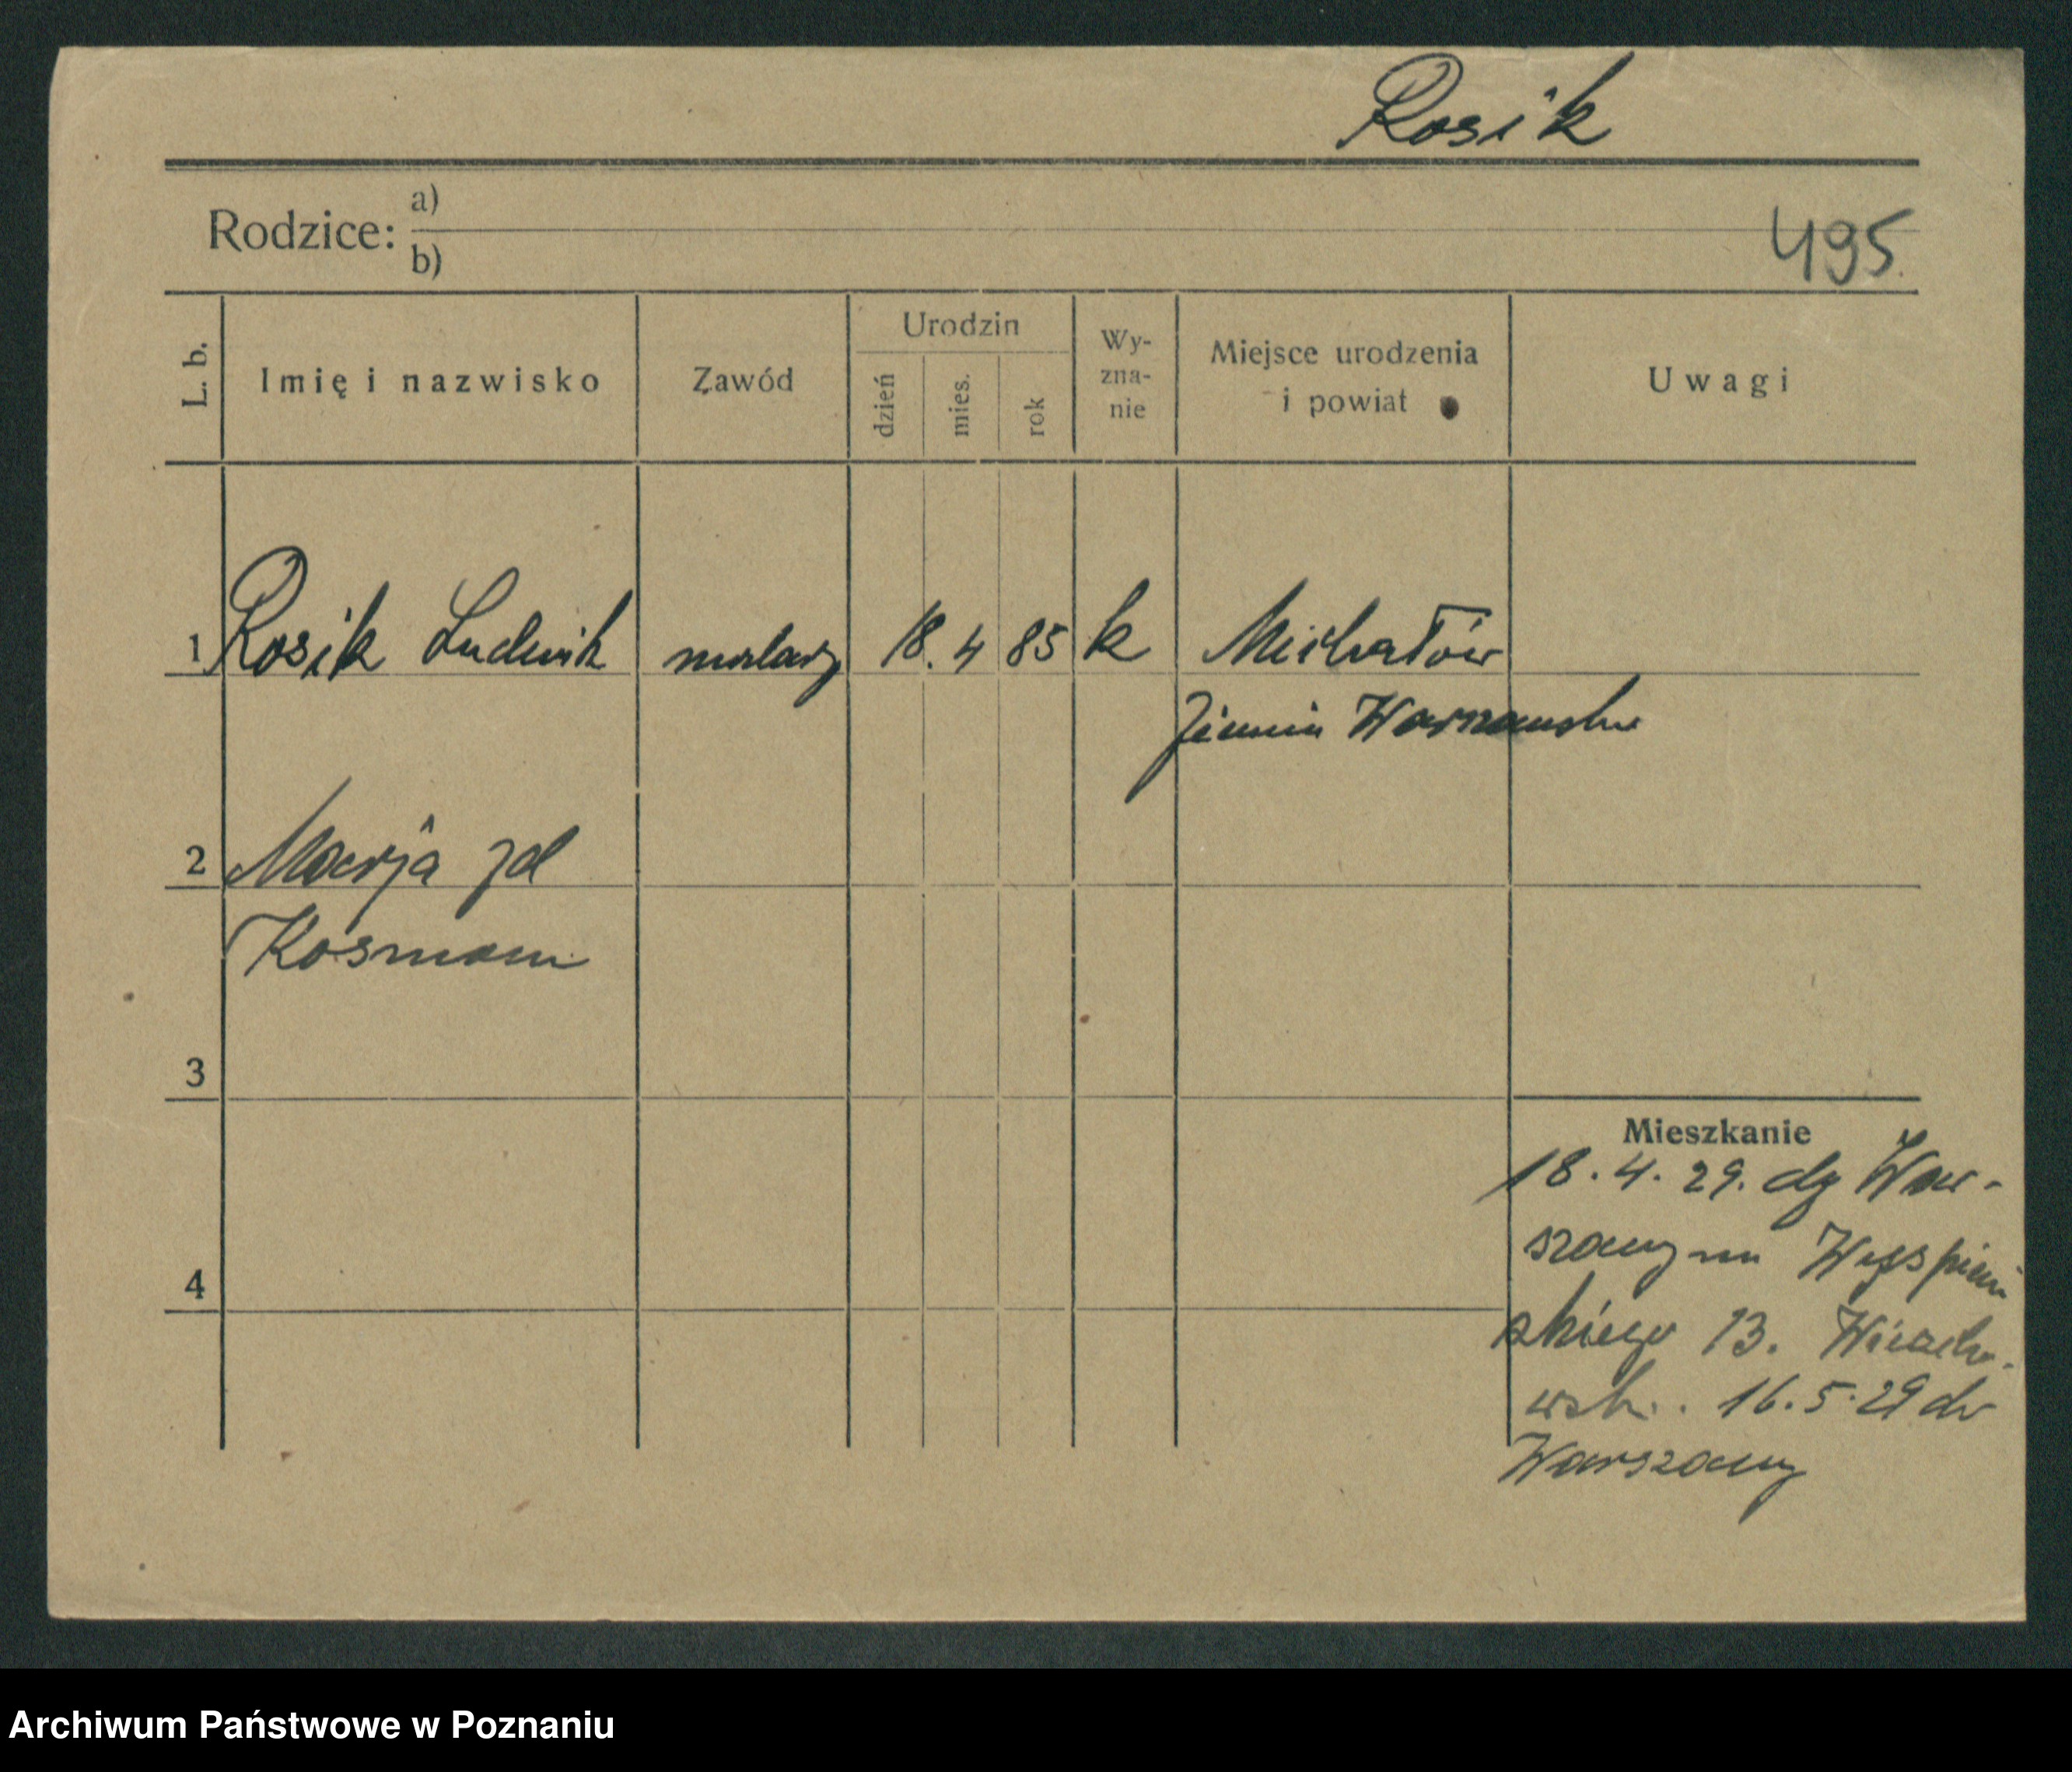 Rosik
Rodzice: a)
b)
495.
L. b.
Imię i nazwisko
Zawód
Urodzin
dzień
mies.
rok
Wy-
zna-
nie
Miejsce urodzenia
i powiat
Uwagi
1 Rosik Ludwik malarz 18. 4 85 k Michałów
Ziemia Warszawska
2 Marja zd
Kosman
3
4
Mieszkanie
18. 4. 29. dz War-
szawy na Wyspiań
skiego 13.
16. 5. 29 do
Warszawy
Archiwum Państwowe w Poznaniu